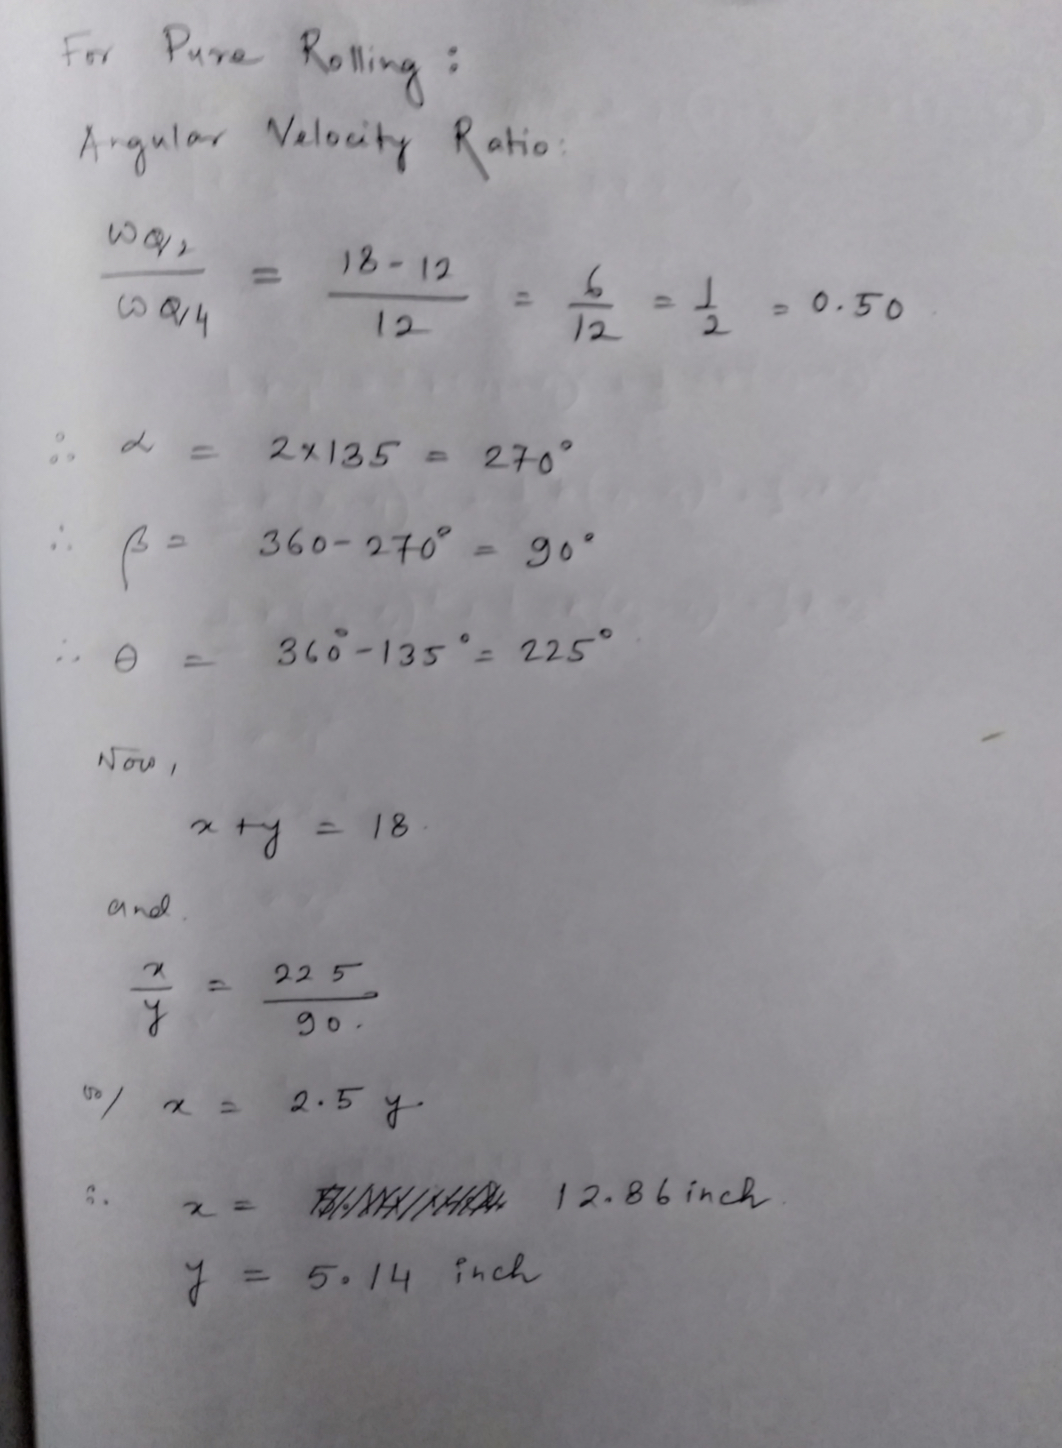 For Pure Rolling :
Angular Velocity Ratio:
ωQ2 / ωQ4 = 18-12 / 12 = 6/12 = 1/2 = 0.50
∴ α = 2×135 = 270°
∴ β = 360-270° = 90°
∴ θ = 360°-135° = 225°
Now,
x+y = 18.
and.
x/y = 225/90.
or/ x = 2.5 y.
∴ x = 12.86 inch.
y = 5.14 inch